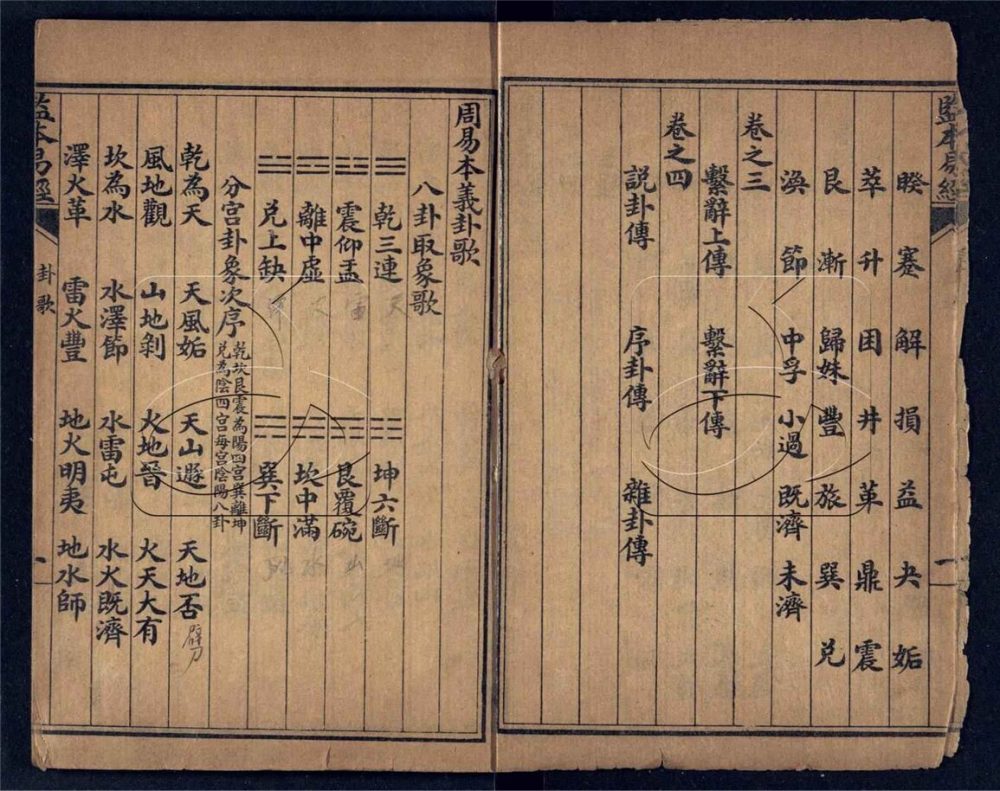 監本易經
睽 蹇 解 損 益 夬 姤
萃 升 困 井 革 鼎 震
艮 漸 歸妹 豐 旅 巽 兌
渙 節 中孚 小過 既濟 未濟
卷之三
繫辭上傳 繫辭下傳
卷之四
説卦傳 序卦傳 雜卦傳
一
周易本義卦歌
八卦取象歌
☰ 乾三連 ☷ 坤六斷
☳ 震仰盂 ☶ 艮覆碗
☲ 離中虛 ☵ 坎中滿
☱ 兌上缺 ☴ 巽下斷
分宮卦象次序 乾坎艮震為陽四宮巽離坤
兌為陰四宮每宮陰陽八卦
乾為天 天風姤 天山遯 天地否
風地觀 山地剝 火地晉 火天大有
坎為水 水澤節 水雷屯 水火既濟
澤火革 雷火豐 地火明夷 地水師
監本易經 卦歌 一